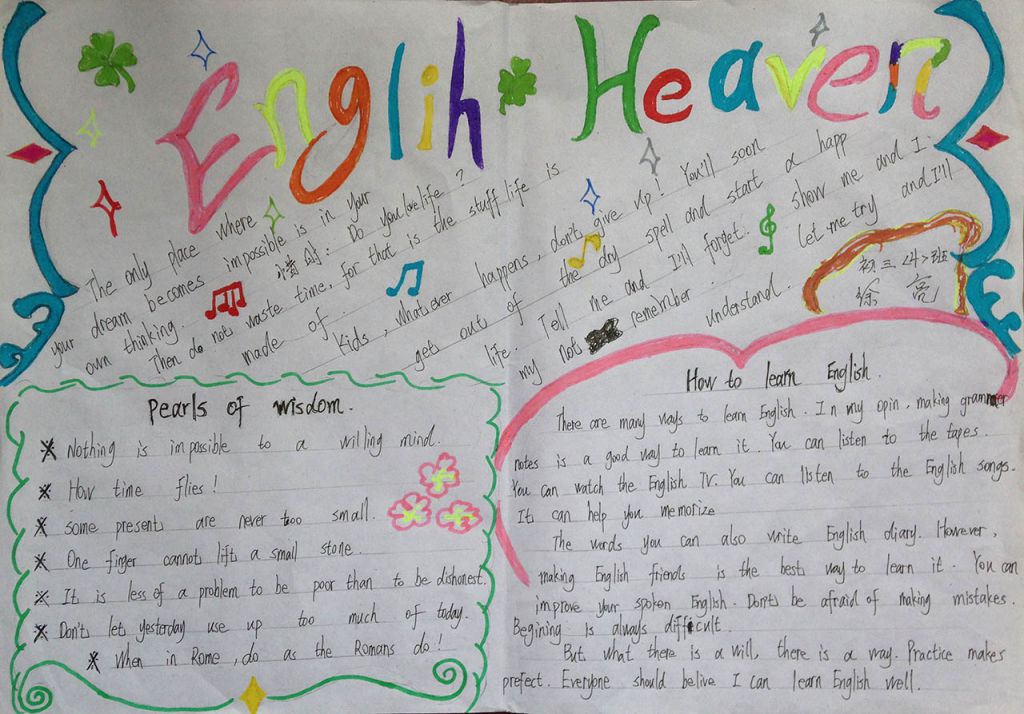 Englih Heaven
The only place where
your dream becomes impossible is in your
own thinking. Do you love life?
Then do not waste time, for that is the stuff life is
made of.
Kids, whatever happens, don't give up! You'll soon
get out of the dry spell and start a happ
life. Tell me and I'll forget. show me and I
my not remember. Let me try and I'll
understand.
初三4班
徐亮
Pearls of wisdom.
Nothing is impossible to a willing mind.
How time flies!
some present are never too small.
One finger cannot lift a small stone.
It is less of a problem to be poor than to be dishonest.
Don't let yesterday use up too much of today.
When in Rome, do as the Romans do!
How to learn English.
There are many ways to learn English. In my opin, making grammer
notes is a good way to learn it. You can listen to the tapes.
You can watch the English TV. You can listen to the English songs.
It can help you memorize
The words you can also write English diary. However,
making English friends is the best way to learn it. You can
improve your spoken English. Don't be afraid of making mistakes.
Begining is always difficult.
But what there is a will, there is a way. Practice makes
prefect. Everyone should belive I can learn English well.